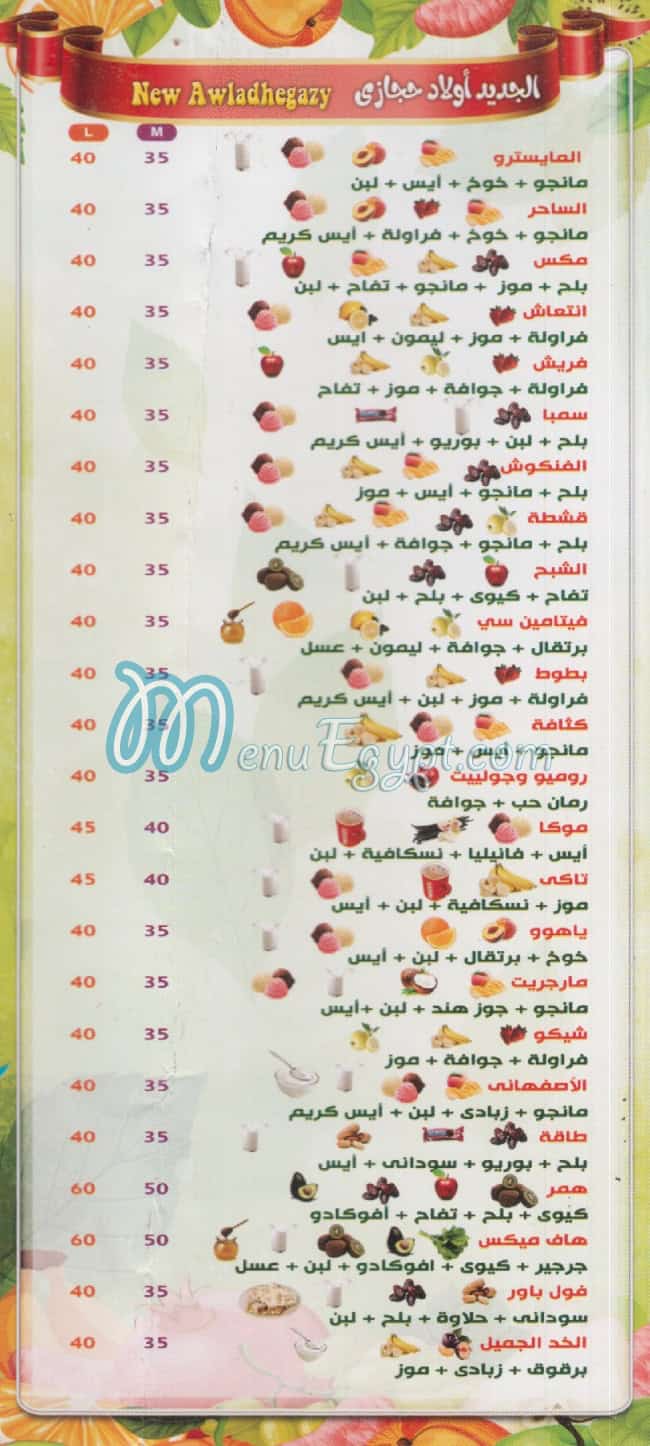 الجديد أولاد حجازى New Awladhegazy
M L
المايسترو 35 40
مانجو + خوخ + أيس + لبن
الساحر 35 40
مانجو + خوخ + فراولة + أيس كريم
مكس 35 40
بلح + موز + مانجو + تفاح + لبن
انتعاش 35 40
فراولة + موز + ليمون + أيس
فريش 35 40
فراولة + جوافة + موز + تفاح
سمبا 35 40
بلح + لبن + بوريو + أيس كريم
الفنكوش 35 40
بلح + مانجو + أيس + موز
قشطة 35 40
بلح + مانجو + جوافة + أيس كريم
الشبح 35 40
تفاح + كيوى + بلح + لبن
فيتامين سي 35 40
برتقال + جوافة + ليمون + عسل
بطوط 35 40
فراولة + موز + لبن + أيس كريم
كثافة 35 40
مانجو + أيس + موز
MenuEgypt.com
روميو وجولييت 35 40
رمان حب + جوافة
موكا 40 45
أيس + فانيليا + نسكافية + لبن
تاكى 40 45
موز + نسكافية + لبن + أيس
ياهوو 35 40
خوخ + برتقال + لبن + أيس
مارجريت 35 40
مانجو + جوز هند + لبن +أيس
شيكو 35 40
فراولة + جوافة + موز
الأصفهانى 35 40
مانجو + زبادى + لبن + أيس كريم
طاقة 35 40
بلح + بوريو + سودانى + أيس
همر 50 60
كيوى + بلح + تفاح + أفوكادو
هاف ميكس 50 60
جرجير + كيوى + افوكادو + لبن + عسل
فول باور 35 40
سودانى + حلاوة + بلح + لبن
الخد الجميل 35 40
برقوق + زبادى + موز